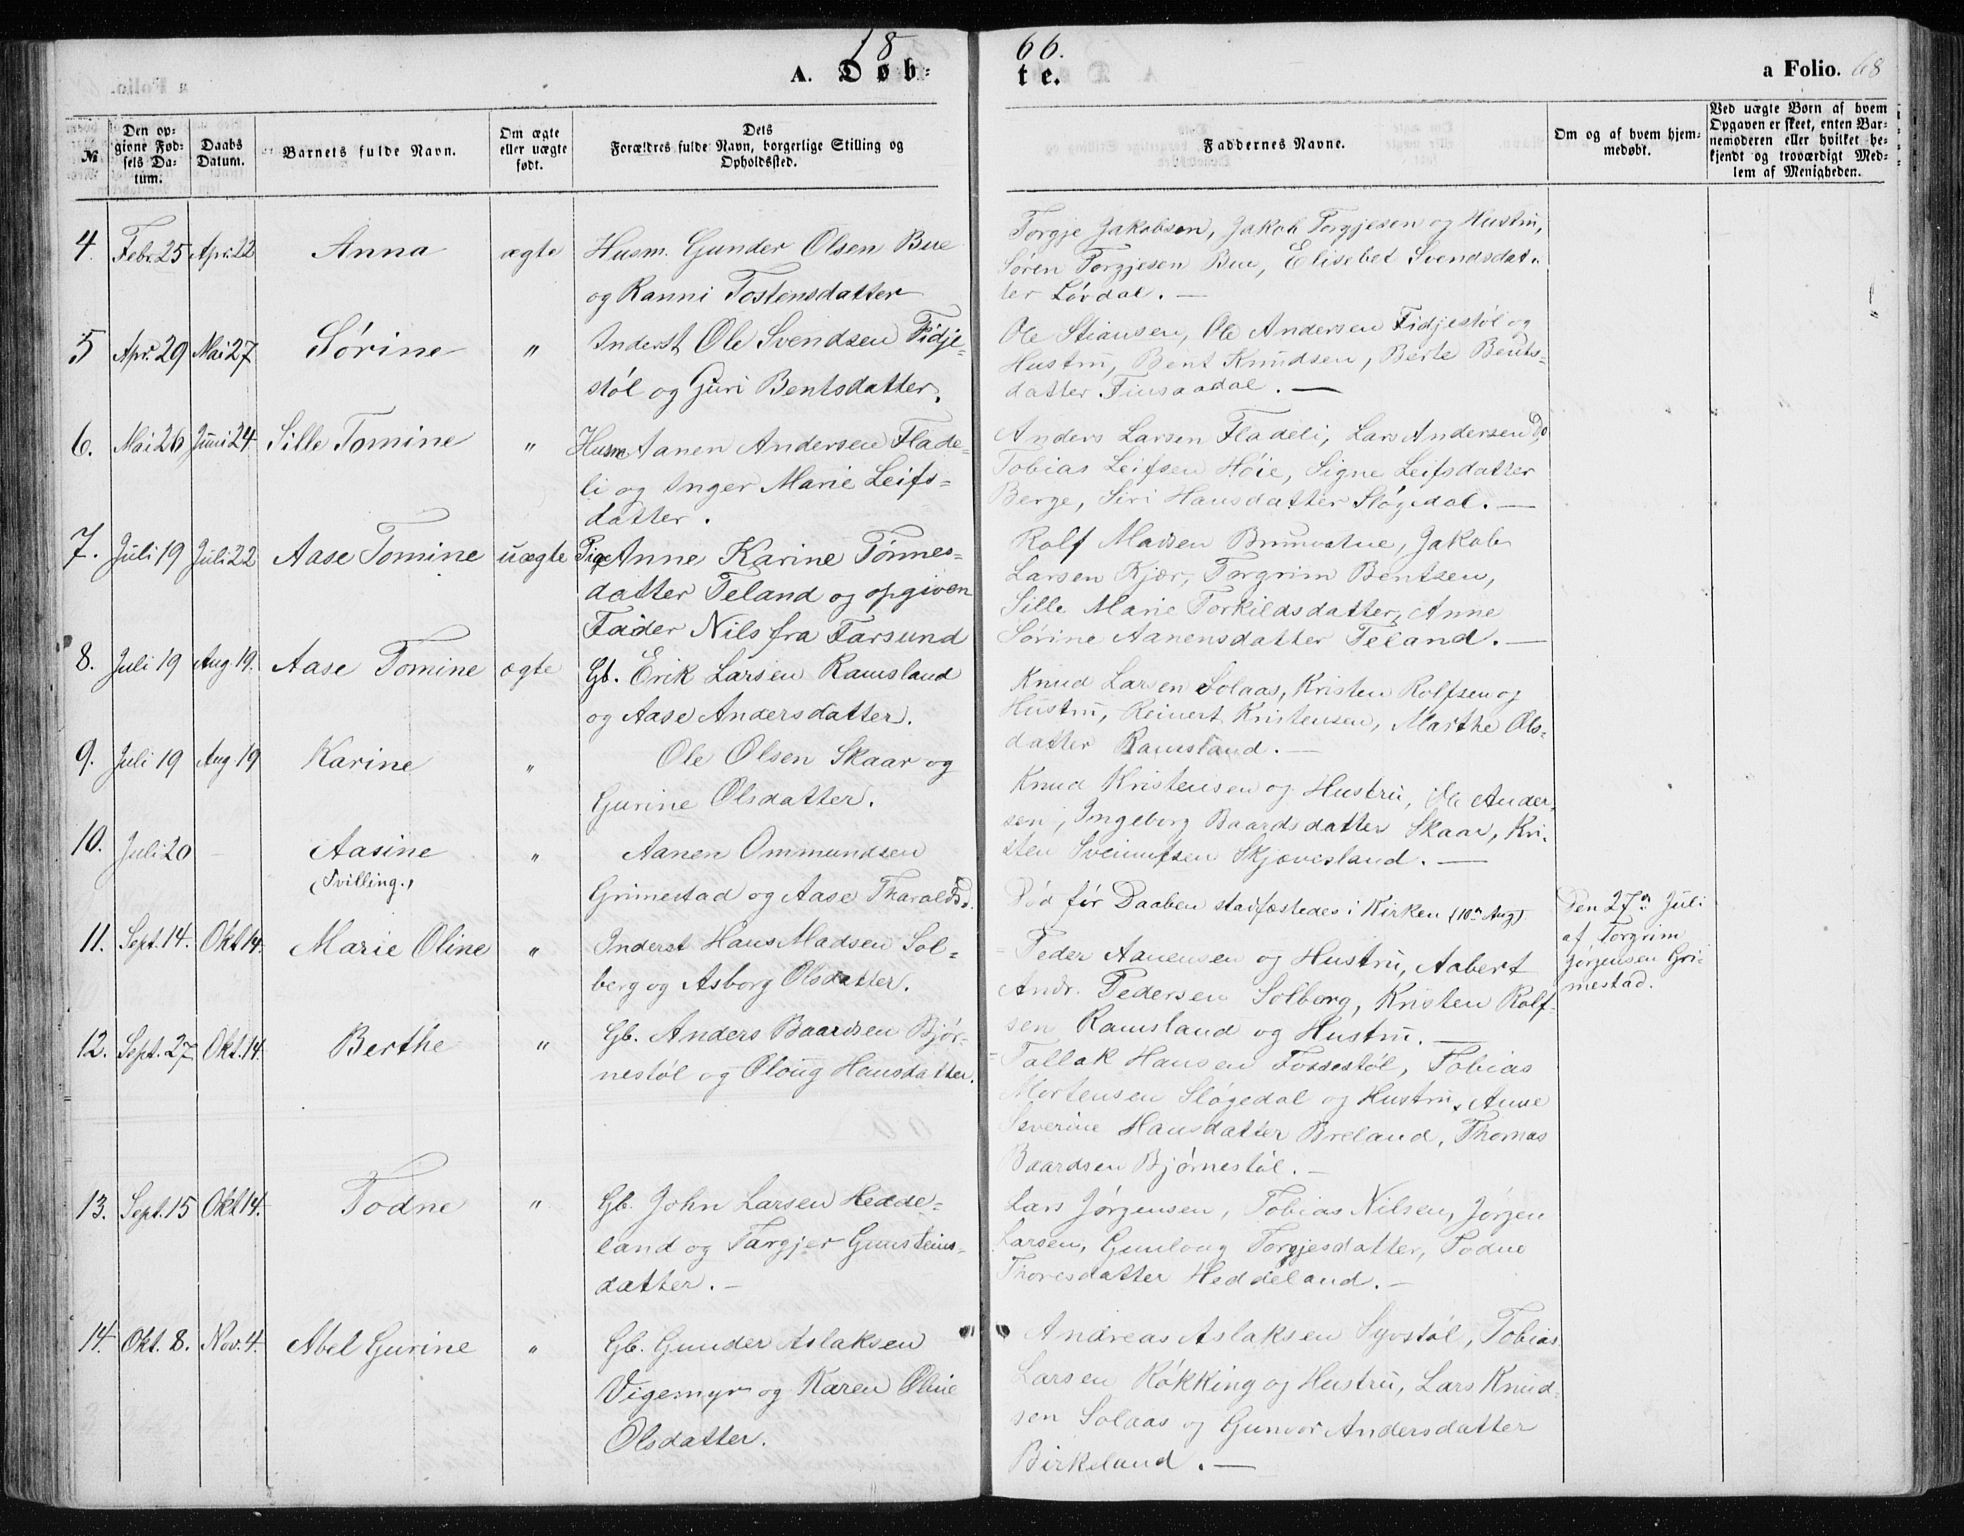 1866.
A. Døbte.
a Folio. 68
№
Den opgivne Fødsels Datum.
Daabs Datum.
Barnets fulde Navn.
Om ægte eller uægte født.
Dets Forældres fulde Navn, borgerlige Stilling og Opholdssted.
Faddernes Navne.
Om og af hvem hjemmedøbt.
Ved uægte Børn af hvem Opgaven er skeet, enten Barnemoderen eller hvilket bekjendt og troværdigt Medlem af Menigheden.
4. Febr. 25 Apr. 22 Anna ægte
Husm. Gunder Olsen Bue
og Ranni Tostensdatter
Torgje Jakobsen, Jakob Torgjesen og Hustru,
Søren Torgjesen Bue, Elisebet Svendsdat-
ter Løvdal. —
5 Apr. 29 Mai 27 Sørine "
Inderst Ole Svendsen Fidje-
støl og Guri Bentsdatter.
Ole Stiansen, Ole Andersen Fidjestøl og
Hustru, Bent Knudsen, Berte Bents-
datter Finsaadal. —
6. Mai 26 Juni 24 Sille Tomine "
Husm Aanen Andersen Flade-
li og Inger Marie Leifs-
datter.
Anders Larsen Fladeli, Lars Andersen Do
Tobias Leifsen Høie, Signe Leifsdatter
Berge, Siri Hansdatter Sløgedal. —
7. Juli 19 Juli 22 Aase Tomine uægte
Pige Anne Karine Tønnes-
datter Teland og opgiven
Fader Nils fra Farsund
Rolf Madsen Brunvatne, Jakob
Larsen Kjær, Torgrim Bentsen,
Sille Marie Torkildsdatter, Anne
Sørine Aanensdatter Teland. —
8. Juli 19 Aug 19. Aase Tomine ægte
Gb. Erik Larsen Ramsland
og Aase Andersdatter.
Knud Larsen Solaas, Kristen Rolfsen og
Hustru, Reinert Kristensen, Marthe Ols-
datter Ramsland. —
9. Juli 19 Aug 19 Karine "
Ole Olsen Skaar og
Gurine Olsdatter.
Knud Kristensen og Hustru, Ole Ander-
sen, Ingeborg Baardsdatter Skaar, Kri-
sten Sveinufsen Skjævesland. —
10. Juli 20 — Aasine "
(Tvilling.)
Aanen Ommundsen
Grimestad og Aase Tharaldsd.
Død før Daaben stadfæstedes i Kirken (10n Aug)
Den 27n Juli
af Torgrim
Jørgensen Gri-
mestad.
11. Sept. 14. Okt 14. Marie Oline "
Inderst Hans Madsen Sol-
berg og Asborg Olsdatter.
Peder Aanensen og Hustru, Aabert
Andr. Pedersen Solberg, Kristen Rolf-
sen Ramsland og Hustru. —
12. Sept. 27 Okt. 14 Berthe "
Gb. Anders Baardsen Bjør-
nestøl og Oloug Hansdatter.
Tallak Hansen Fossestøl, Tobias
Mortensen Sløgedal og Hustru, Anne
Severine Hansdatter Breland, Thomas
Baardsen Bjørnestøl. —
13. Sept. 15 Okt 14. Todne "
Gb. John Larsen Hedde-
land og Targjer Gunsteins-
datter. —
Lars Jørgensen, Tobias Nilsen, Jørgen
Larsen, Gunloug Torgjesdatter, Todne
Thoresdatter Heddeland. —
14. Okt. 8. Nov. 4. Abel Gurine "
Gb. Gunder Aslaksen
Vigemyr og Karen Oline
Olsdatter.
Andreas Aslaksen Syvstøl, Tobias
Larsen Røkking og Hustru, Lars Knud-
sen Solaas og Gunvor Andersdatter
Birkeland. —